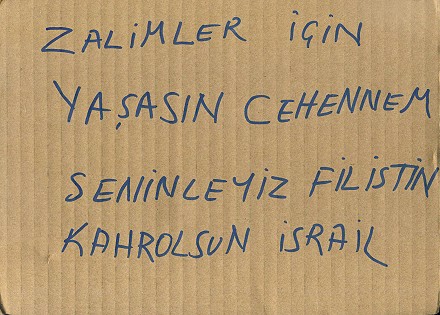 ZALİMLER İÇİN
YAŞASIN CEHENNEM
SENİNLEYİZ FİLİSTİN
KAHROLSUN İSRAİL